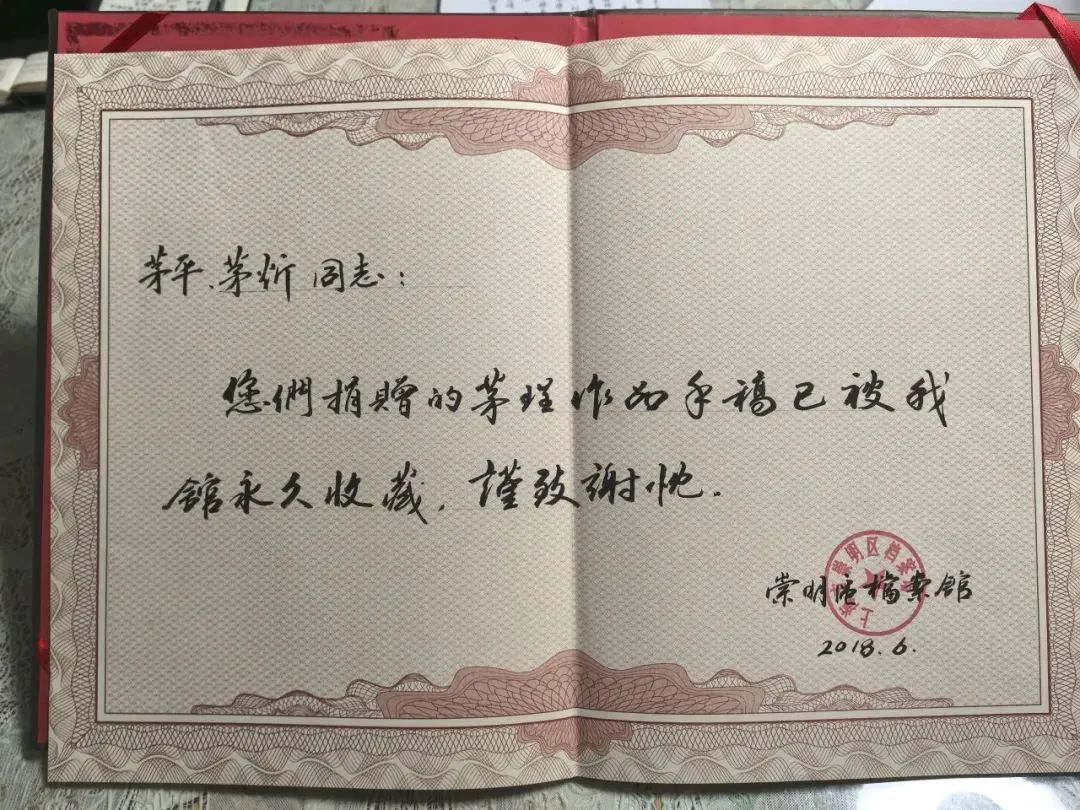 茅平、茅炘 同志:
您們捐贈的茅珵作品手稿已被我
館永久收藏,謹致謝忱.
上海市崇明区档案馆
崇明區檔案館
2018.6.